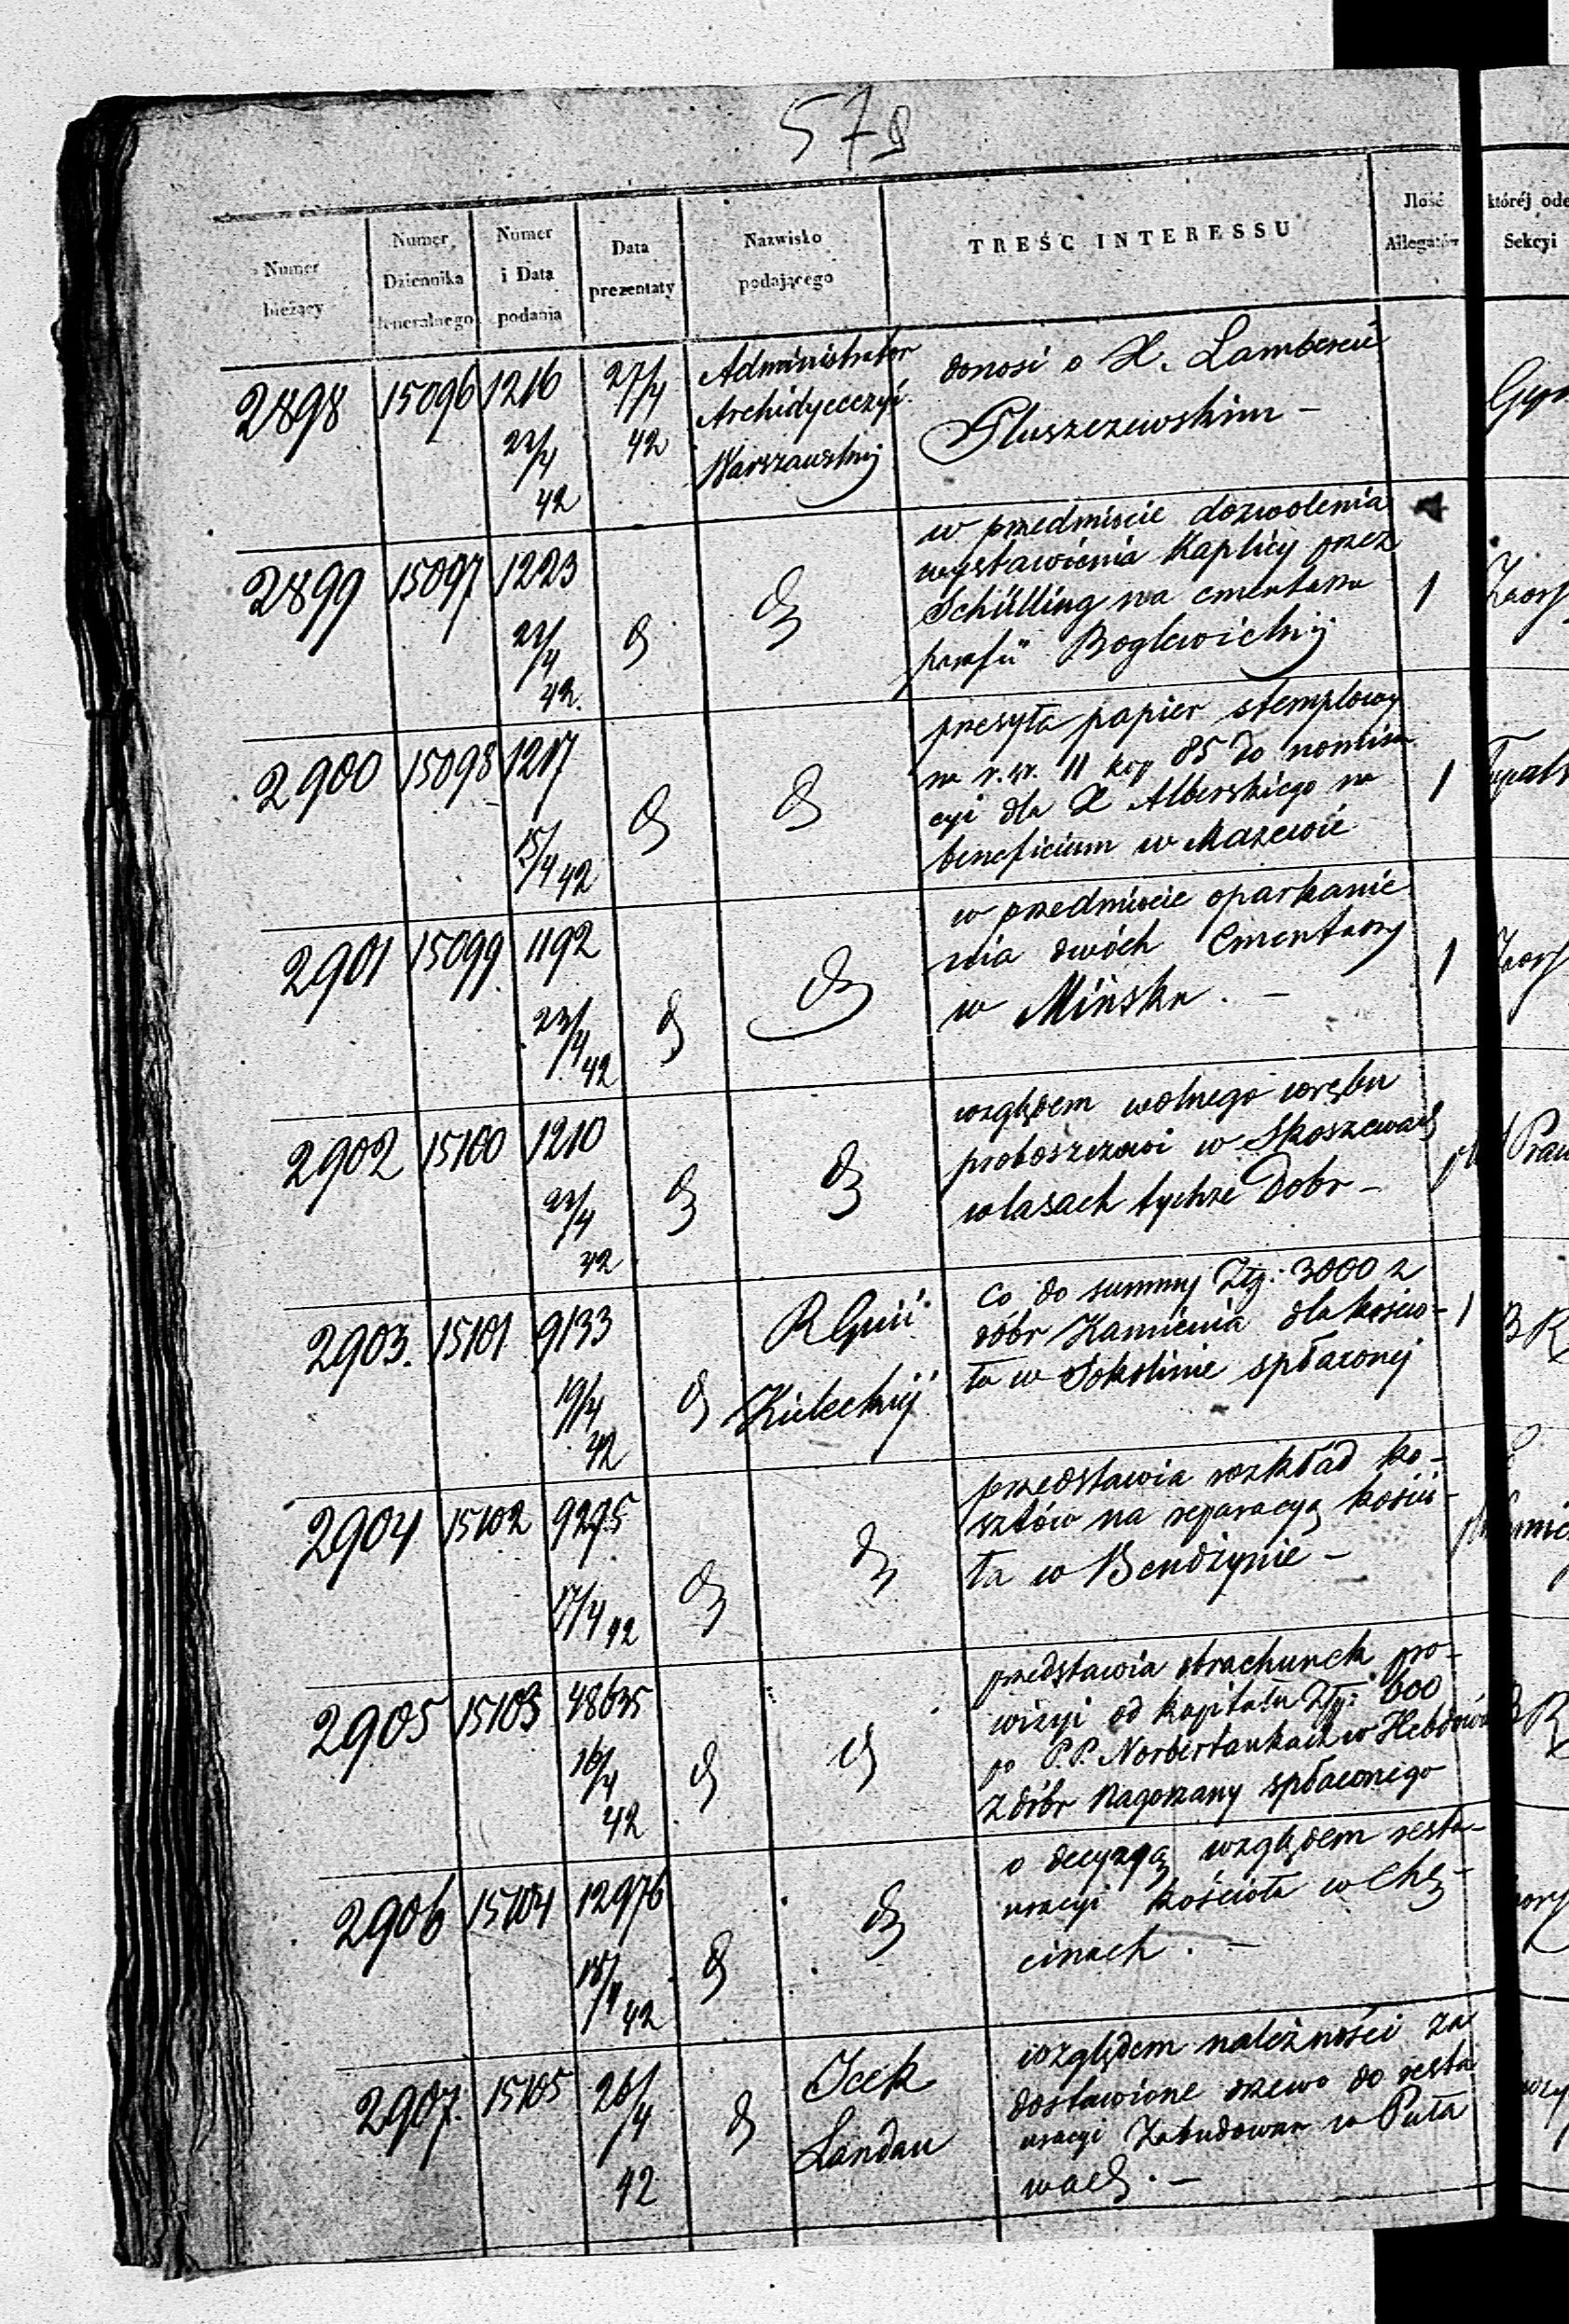 578
Numer bieżący
Numer Dziennika Jeneralnego
Numer i Data podania
Data prezentaty
Nazwisko podającego
TREŚĆ INTERESSU
Ilość Allegatów
któréj
Sekcyi
2898 15096 1216 22/4 42 27/4 42
Administrator
Archidyecezyi
Warszawskiej
donosi o X. Lambercie
Głuszczewskim –
2899 15097 1223 22/4 42. d d
w przedmiocie dozwolenia
wystawienia Kaplicy przez
Schülling na cmentarzu
parafii Boglewickiej
1
2900 15098 1217 15/4 42 d d
przesyła papier stemplowy
na r. sr. 11 kop 85 do nomina
cyi dla X Alberskiego na
beneficium w Mazewie
1
2901 15099 1192 23/4 42 d d
w przedmiocie oparkanie
nia dwóch Cmentarzy
w Mińsku. –
1
2902 15100 1210 22/4 42 d d
względem wolnego wrębu
proboszczowi w Skoszewach
w lasach tychże Dobr –
2903. 15101 9133 19/4 42 d
R Gnii
Kieleckiej
Co do summy Złp: 3000 z
dóbr Kamienia dla kościo-
ła w Sokolinie spłaconej
1
2904 15102 9275 17/4 42 d d
przedstawia rozkład ko-
sztów na reparacyą kościo-
ła w Bendzynie –
2905 15103 48635 16/4 42 d d
przedstawia obrachunek pro-
wizyi od kapitału Złp: 600
po P.P. Norbertankach w Hebdowie
z dóbr Nagorzany spłaconego
2906 15104 12976 18/4 42 d d
o decyzyą względem resta-
uracyi kościoła w Chę-
cinach. –
2907. 15105 26/4 42 d
Icek
Landau
względem należności za
dostawione drzewo do resta
uracyi Zabudowań w Puła
wach. –